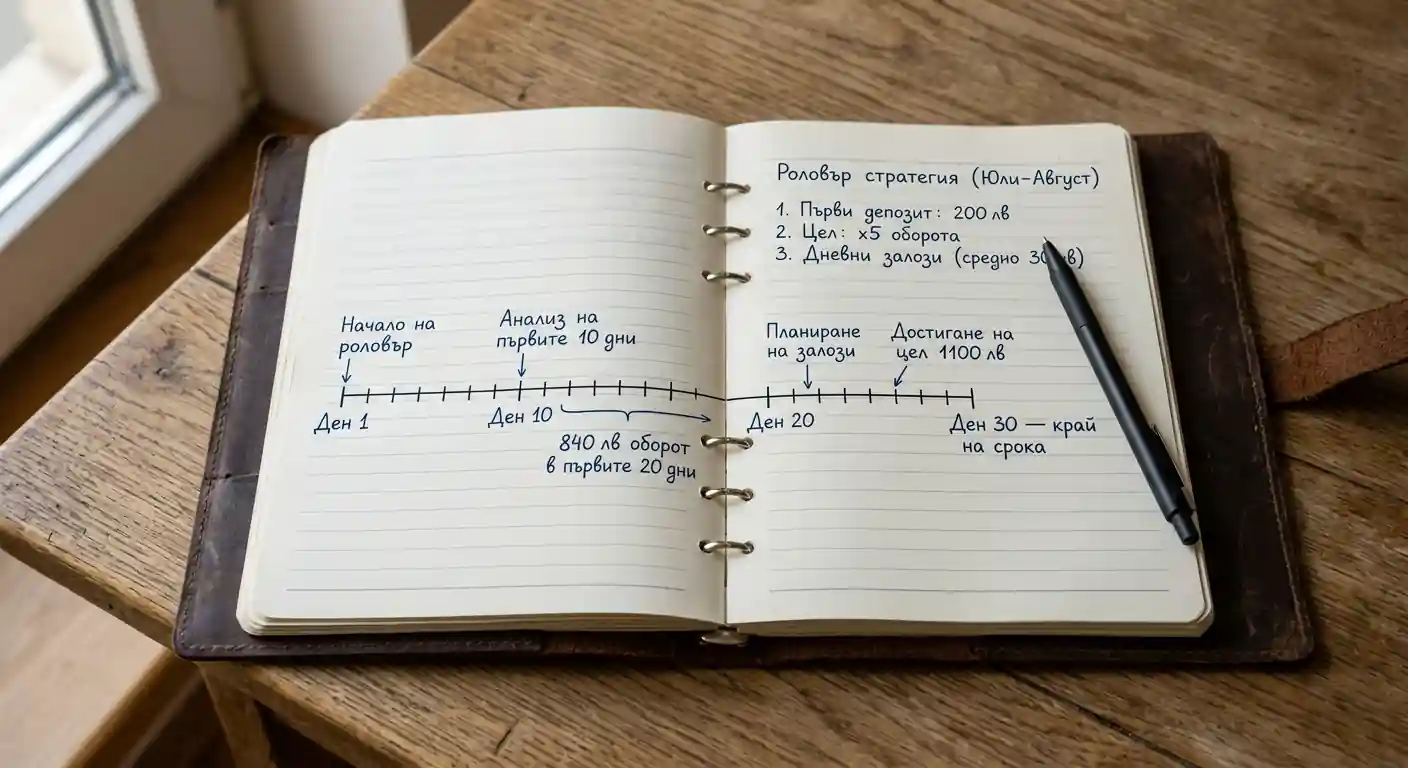 Роловър стратегия (Юли-Август)
1. Първи депозит: 200 лв
2. Цел: x5 оборота
3. Дневни залози (средно
Начало на
роловър
Анализ на
първите 10 дни
Ден 1
Ден 10
840 лв оборот
в първите 20 дни
Планиране
на залози
Достигане на
цел 1100 лв
Ден 20
Ден 30 — край
на срока